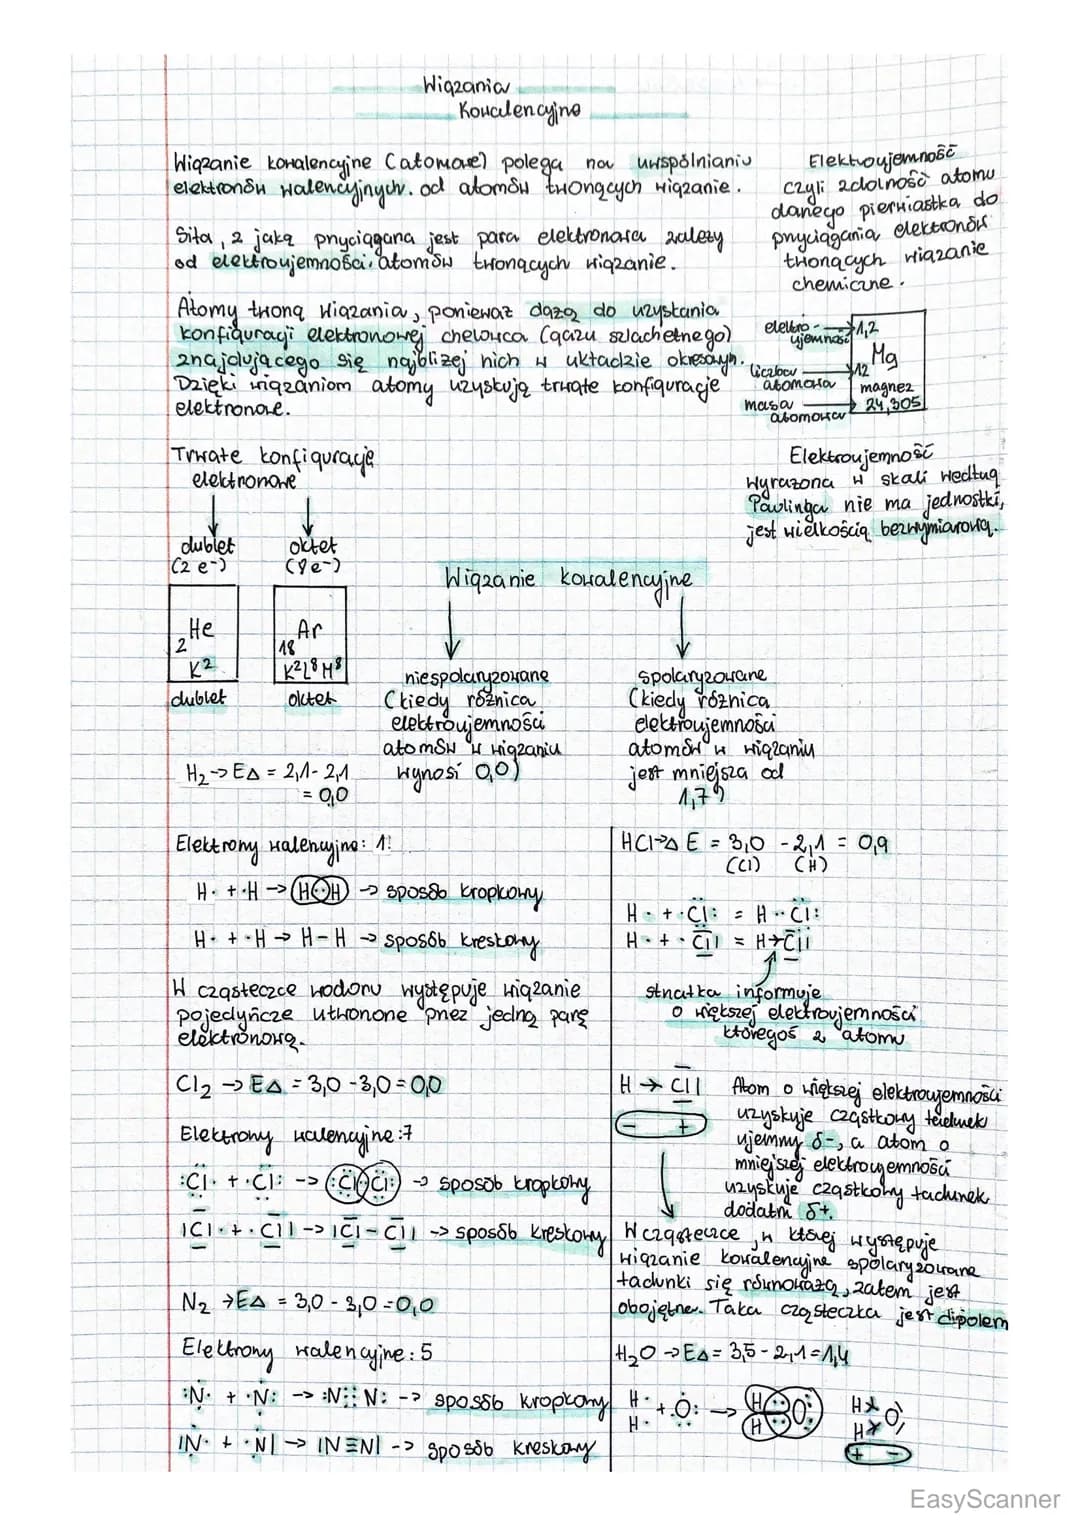 Wiązania
Kowalencyjne
Wiązanie kowalencyjne (atomowe) polega na uwspólnianiu
elektronów walencyjnych od atomów tworzących wiązanie.
Siła, z jaką przyciągana jest para elektronowa zależy
od elektroujemności atomów tworzących wiązanie.
Atomy tworzą wiązania, ponieważ dążą do uzyskania
konfiguracji elektronowej helowca (gazu szlachetnego)
znajdującego się najbliżej nich w układzie okresowym.
Dzięki wiązaniom atomy uzyskują trwałe konfiguracje
elektronowe.
Elektroujemność
czyli zdolność atomu
danego pierwiastka do
przyciągania elektronów
tworzących wiązanie
chemiczne.
elektro-
ujemność
1,2
Mg
liczba
atomowa
12
magnez
masa
atomowa
24,305
Trwałe konfiguracje
elektronowe
dublet
(2 e-)
oktet
(8 e-)
2 He
K²
dublet
18 Ar
K²L⁸M⁸
oktet
Elektroujemność
wyrażona w skali według
Paulinga nie ma jednostki,
jest wielkością bezwymiarową.
Wiązanie kowalencyjne
niespolaryzowane
(kiedy różnica
elektroujemności
atomów w wiązaniu
wynosi 0,0)
spolaryzowane
(kiedy różnica
elektroujemności
atomów w wiązaniu
jest mniejsza od
1,7)
H₂ -> E△ = 2,1 - 2,1
= 0,0
Elektrony walencyjne: 1!
H· + ·H -> H··H -> sposób kropkowy
H· + ·H -> H-H -> sposób kreskowy
W cząsteczce wodoru występuje wiązanie
pojedyńcze utworzone przez jedną parę
elektronową.
Cl₂ -> E△ = 3,0 - 3,0 = 0,0
Elektrony walencyjne: 7
:C̈l· + ·C̈l: -> :Cl··Cl: -> sposób kropkowy
|Cl· + ·Cl| -> |Cl - Cl| -> sposób kreskowy
N₂ -> E△ = 3,0 - 3,0 = 0,0
Elektrony walencyjne: 5
:N· + ·N: -> :N⫶⫶N: -> sposób kropkowy
|N· + ·N| -> |N≡N| -> sposób kreskowy
HCl -> △E = 3,0 - 2,1 = 0,9
(Cl) (H)
H· + ·C̈l: = H··C̈l:
H· + ·Cl| = H→Cl|
strzałka informuje
o większej elektroujemności
któregoś z atomu
H → Cl|
- +
Atom o większej elektroujemności
uzyskuje cząstkowy ładunek
ujemny δ-, a atom o
mniejszej elektroujemności
uzyskuje cząstkowy ładunek
dodatni δ+.
W cząsteczce, w której występuje
wiązanie kowalencyjne spolaryzowane
ładunki się równoważą, zatem jest
obojętne. Taka cząsteczka jest dipolem
H₂O -> E△ = 3,5 - 2,1 = 1,4
H·
H· + ·Ö: -> H H O
H
H O
+ -
EasyScanner